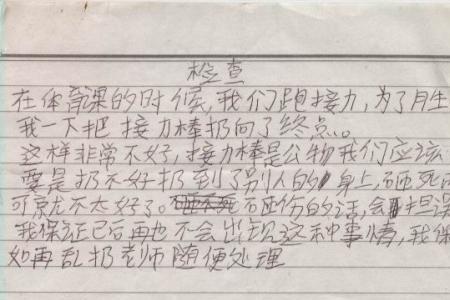 检查
在体育课的时候,我们跑接力,为了月生
我一下把接力棒扔向了终点。
这样非常不好,接力棒是公物我们应该
要是扔不好扔到了别人的身上,砸死
可就不太好了。砸伤的话,会担误
我保证已后再也不会出现这种事情,我保
如再乱扔老师随便处理